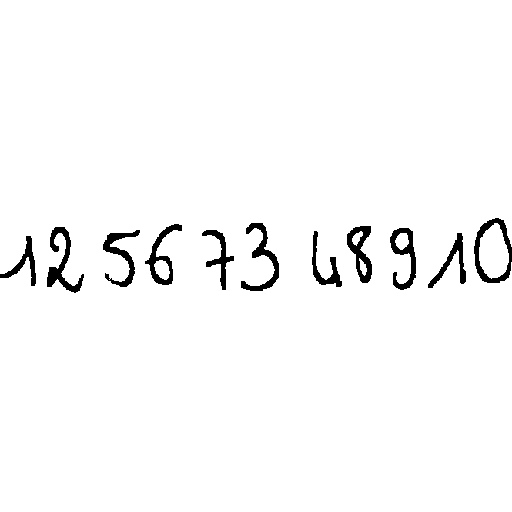 12 56 73 48 9 10